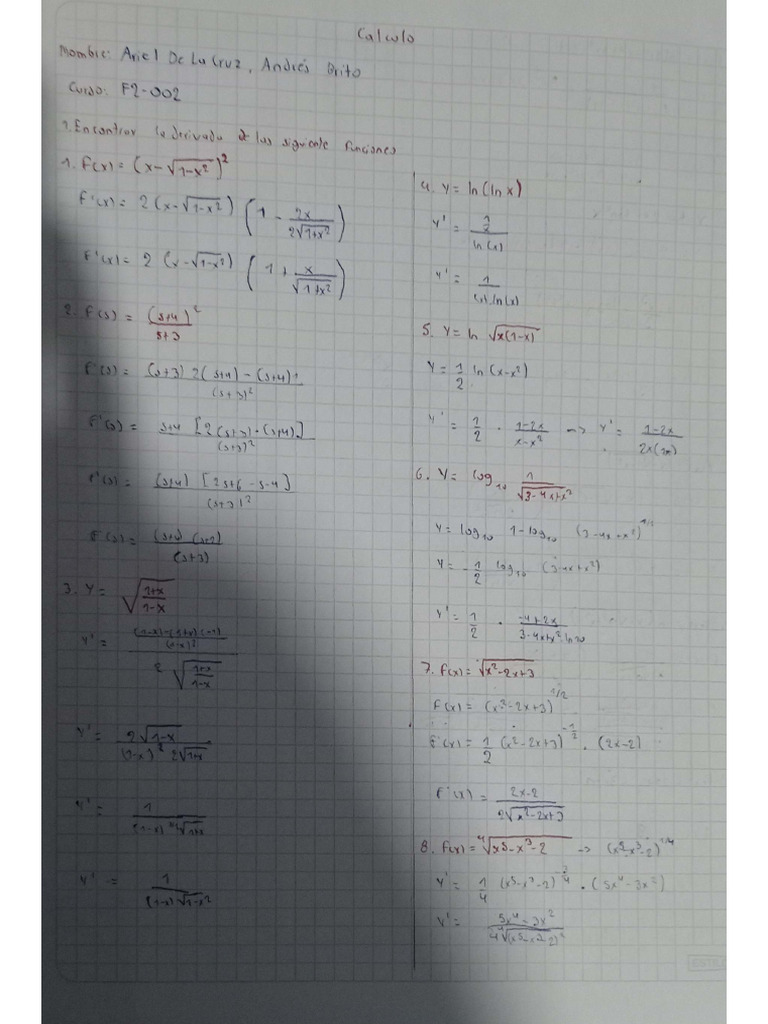 Calculo
Nombre: Ariel De La Cruz, Andrés Brito
Curso: F2-002
1. Encontrar la derivada de las siguiente funciones
1. F(x) = (x-√(1-x²))²
F'(x) = 2(x-√(1-x²)) (1 - 2x/(2√(1+x²)))
F'(x) = 2 (x-√(1-x²)) (1 + x/√(1+x²))
2. F(s) = (s+4)²/(s+3)
F'(s) = (s+3) 2(s+4) - (s+4)²/(s+3)²
F'(s) = s+4 [2(s+3) - (s+4)]/(s+3)²
F'(s) = (s+4) [2s+6-s-4]/(s+3)²
F(s) = (s+4) (s+2)/(s+3)
3. Y = √((1+x)/(1-x))
Y' = ((1-x)-(1+x)(-1))/(1-x)² / 2√((1+x)/(1-x))
Y' = 2√(1-x)/((1-x)² 2√(1+x))
Y' = 1/((1-x) √(1+x))
Y' = 1/((1-x)√(1-x²))
4. Y = ln(ln x)
Y' = /ln(x)
Y' = 1/ ln(x)
5. Y = ln √(x(1-x))
Y = 1/2 ln (x-x²)
Y' = 1/2 · (1-2x)/(x-x²) => Y' = (1-2x)/2x
6. Y = log₁₀ 1/√(3-4x+x²)
Y = log₁₀ 1-log₁₀ (3-4x+x²)^1/2
Y = -1/2 log₁₀ (3-4x+x²)
Y' = 1/2 · (-4+2x)/(3-4x+x²·ln 10)
7. F(x) = √(x²-2x+3)
F(x) = (x²-2x+3)^1/2
F'(x) = 1/2 (x²-2x+3)^-1/2 · (2x-2)
F'(x) = (2x-2)/(2√(x²-2x+3))
8. F(x) = ⁴√(x⁵-x³-2) -> (x⁵-x³-2)^1/4
Y' = 1/4 (x⁵-x³-2)^-3/4 · (5x⁴-3x²)
Y' = (5x⁴-3x²)/